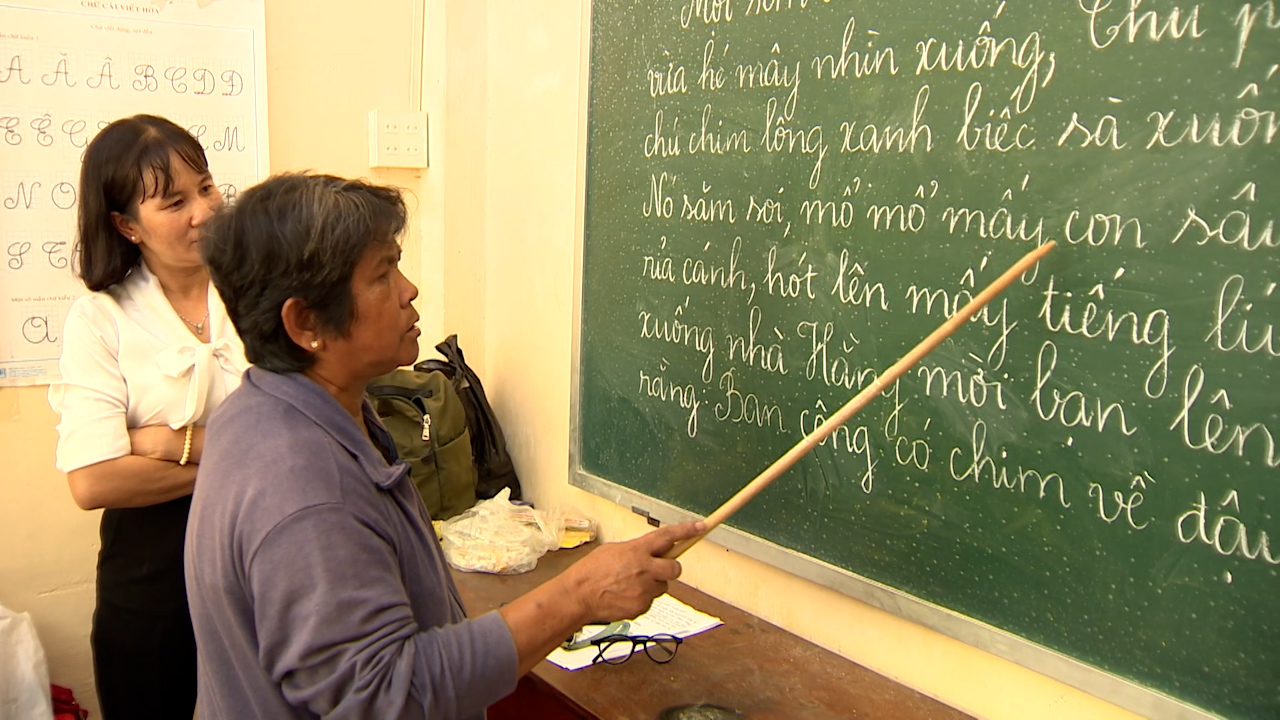 CHỮ CÁI VIẾT HOA
A Ă Â B C D Đ
E Ê G M
N O
S T
a
vừa hé mây nhìn xuống, Thu p
chú chim lông xanh biếc sà xuốn
Nó săm soi, mổ mổ mấy con sâu
rỉa cánh, hót lên mấy tiếng lí
xuống nhà Hằng mời bạn lên
rằng Ban công có chim về đậu